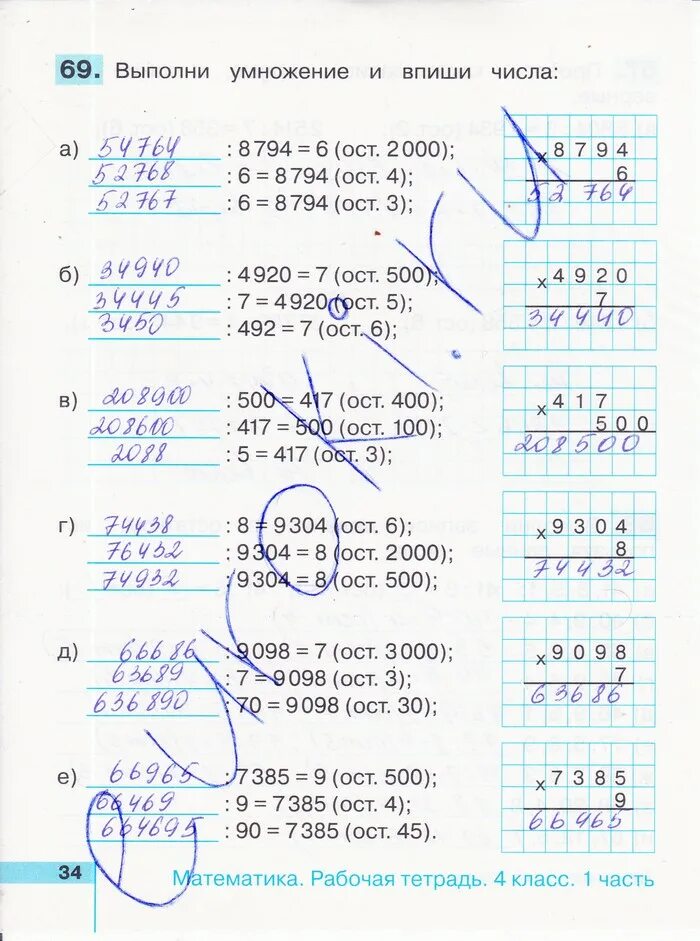 69. Выполни умножение и впиши числа:
а) 54764 : 8794 = 6 (ост. 2000);
52768 : 6 = 8794 (ост. 4);
52767 : 6 = 8794 (ост. 3);
× 8794
6
52 764
б) 34940 : 4920 = 7 (ост. 500);
34445 : 7 = 4920 (ост. 5);
3450 : 492 = 7 (ост. 6);
× 4920
7
34440
в) 208900 : 500 = 417 (ост. 400);
208600 : 417 = 500 (ост. 100);
2088 : 5 = 417 (ост. 3);
× 417
500
208500
г) 74438 : 8 = 9304 (ост. 6);
76432 : 9304 = 8 (ост. 2000);
74932 : 9304 = 8 (ост. 500);
× 9304
8
74432
д) 66686 : 9098 = 7 (ост. 3000);
63689 : 7 = 9098 (ост. 3);
636890 : 70 = 9098 (ост. 30);
× 9098
7
63686
е) 66965 : 7385 = 9 (ост. 500);
66469 : 9 = 7385 (ост. 4);
664695 : 90 = 7385 (ост. 45).
× 7385
9
66465
34
Математика. Рабочая тетрадь. 4 класс. 1 часть